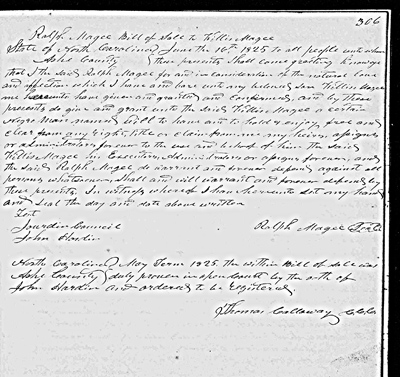 306
Ralph Magee Bill of Sale to Willis Magee
State of North Carolina June the 16th 1825 to all people unto whom
Ashe County these presents Shall come greeting Know ye
that I the said Ralph Magee for and in consideration of the natural love
and affection which I have and bare unto my beloved Son Willis Magee
me have given and granted and Confirmed, and by these
presents do give and grant unto the said Willis Magee a certain
Negro Man named Will to have and to hold & enjoy free and
clear from any right, title or claim from me my heirs, assigns
or administrators forever to the use and behoof of him the said
Willis Magee his Executors, Administrators or assigns forever, and
the said Ralph Magee do warrant and forever defend against all
persons whatsoever, Shall and will warrant and forever defend by
these presents. In witness whereof I have hereunto set my hand
and Seal the day and date above written
Test
Jourdan Council Ralph Magee Seal
John Hardin
North Carolina May Term 1825 the within Bill of Sale was
Ashe County duly proven in open Court by the oath of
John Hardin and ordered to be registered,
Thomas Calloway